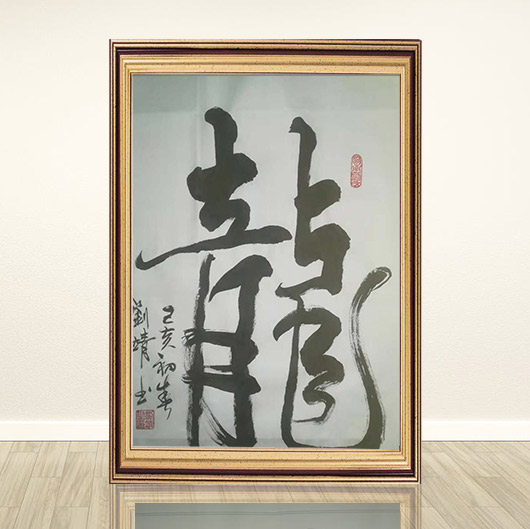 龍
己亥初春
劉靖書